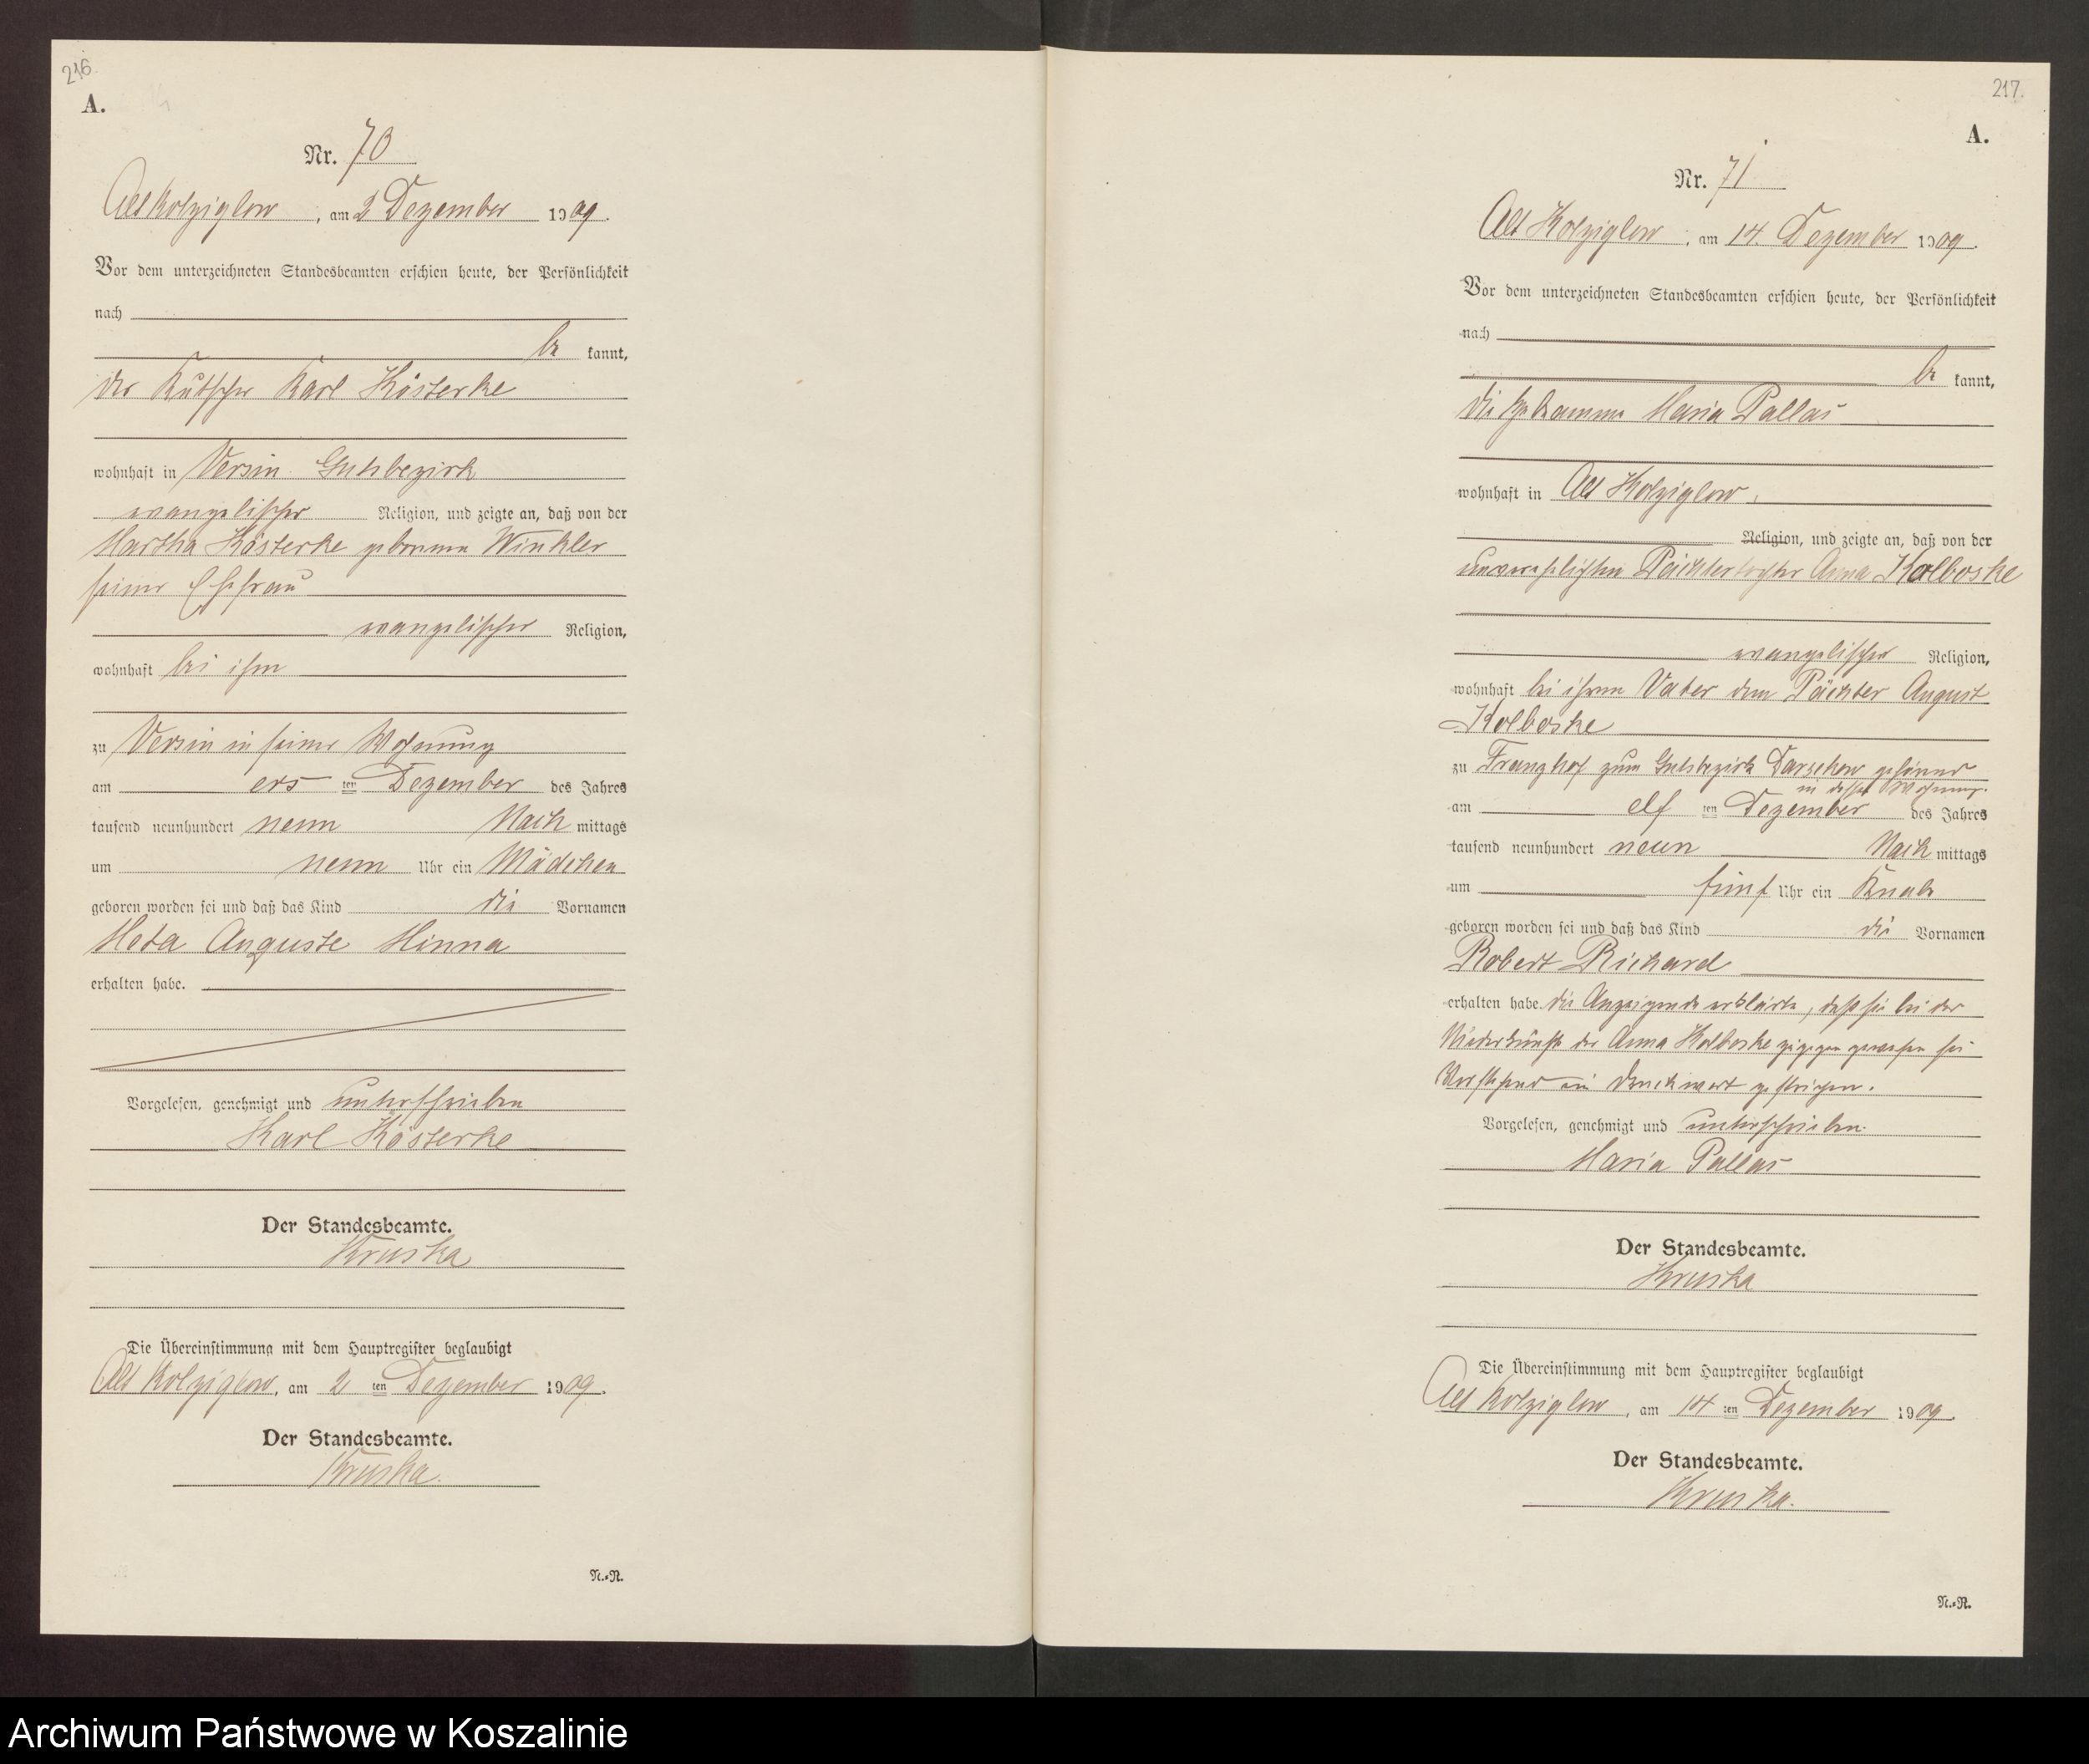 216
A.
Nr. 70
Alt Kolziglow, am 2 Dezember 1909.
Vor dem unterzeichneten Standesbeamten erschien heute, der Persönlichkeit
nach
be kannt,
der Kutscher Karl Kösterke
wohnhaft in Versin Gutsbezirk
evangelischer Religion, und zeigte an, daß von der
Martha Kösterke geborenen Winkler
seiner Ehefrau
evangelischer Religion,
wohnhaft bei ihm
zu Versin in seiner Wohnung
am ers ten Dezember des Jahres
tausend neunhundert neun Nach mittags
um neun Uhr ein Mädchen
geboren worden sei und daß das Kind die Vornamen
Meta Auguste Minna
erhalten habe.
Vorgelesen, genehmigt und unterschrieben
Karl Kösterke
Der Standesbeamte.
Kruska
Die Übereinstimmung mit dem Hauptregister beglaubigt
Alt Kolziglow, am 2 ten Dezember 1909.
Der Standesbeamte.
Kruska.
N.=R.
217.
A.
Nr. 71
Alt Kolziglow, am 14. Dezember 1909.
Vor dem unterzeichneten Standesbeamten erschien heute, der Persönlichkeit
nach
be kannt,
die Hebamme Maria Pallas
wohnhaft in Alt Kolziglow,
Religion, und zeigte an, daß von der
unverehelichten Pächtertochter Anna Kolboske
evangelischer Religion,
wohnhaft bei ihrem Vater dem Pächter August
Kolboske
zu Franzhof zum Gutsbezirk Darsekow gehörend
in dessen Wohnung.
am elf ten Dezember des Jahres
tausend neunhundert neun Nach mittags
um fünf Uhr ein Knabe
geboren worden sei und daß das Kind die Vornamen
Robert Richard
erhalten habe. die Anzeigende erklärte, daß sie bei der
Niederkunft der Anna Kolboske zugegen gewesen sei
Vorstehend ein Druckwort gestrichen.
Vorgelesen, genehmigt und unterschrieben.
Maria Pallas
Der Standesbeamte.
Kruska
Die Übereinstimmung mit dem Hauptregister beglaubigt
Alt Kolziglow, am 14 ten Dezember 1909.
Der Standesbeamte.
Kruska.
N.=R.
Archiwum Państwowe w Koszalinie